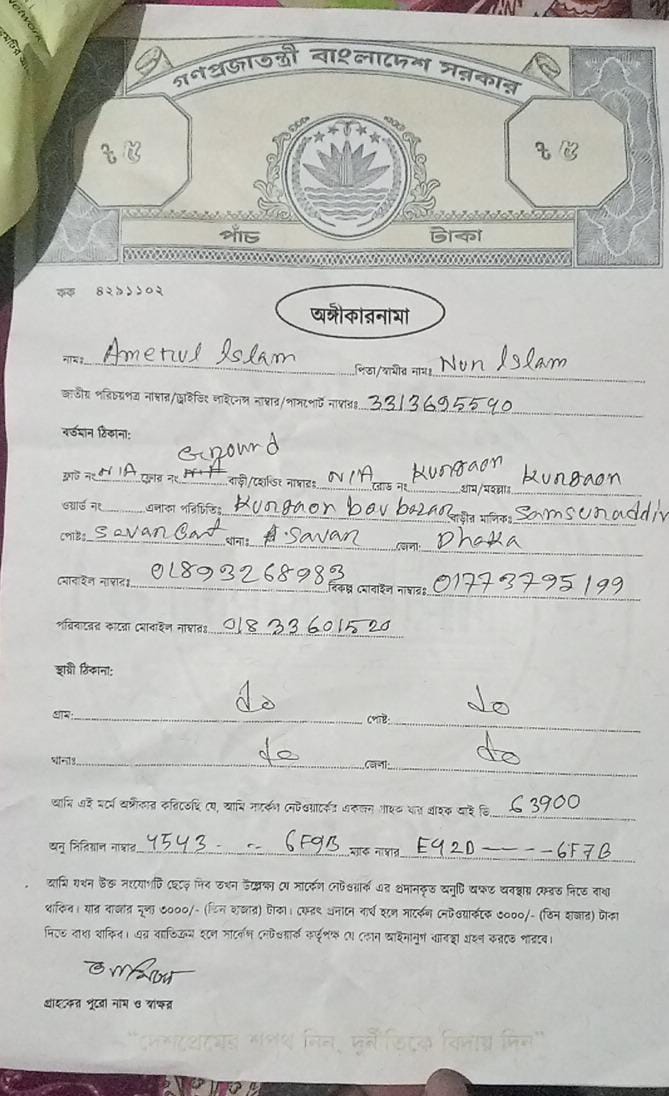 গণপ্রজাতন্ত্রী বাংলাদেশ সরকার
৳ ৫ ৳ ৫
পাঁচ টাকা
কক ৪২৯১১০২
অঙ্গীকারনামা
নামঃ Amenul Islam পিতা/স্বামীর নামঃ Nun Islam
জাতীয় পরিচয়পত্র নাম্বার/ড্রাইভিং লাইসেন্স নাম্বার/পাসপোর্ট নাম্বারঃ 3313695590
বর্তমান ঠিকানা:
Ground
ফ্লাট নং N/A ফ্লোর নং বাড়ী/হোল্ডিং নাম্বারঃ N/A রোড নং Kungaon গ্রাম/মহল্লাঃ Kungaon
ওয়ার্ড নং এলাকা পরিচিতিঃ Kungaon bou bazan বাড়ীর মালিকঃ Samsunaddin
পোষ্টঃ Savan Cant থানাঃ Savan জেলা: Dhaka
মোবাইল নাম্বারঃ 01893268983 বিকল্প মোবাইল নাম্বারঃ 01773795199
পরিবারের কারো মোবাইল নাম্বারঃ 01833601520
স্থায়ী ঠিকানা:
গ্রাম: do পোষ্ট: do
থানাঃ do জেলা: do
আমি এই মর্মে অঙ্গীকার করিতেছি যে, আমি সার্কেল নেটওয়ার্কের একজন গ্রাহক যার গ্রাহক আই ডি 63900
অনু সিরিয়াল নাম্বার 4543 - -- 6F9B ম্যাক নাম্বার E92D ---- -6F7B
আমি যখন উক্ত সংযোগটি ছেড়ে দিব তখন উল্লেক্ষ্য যে সার্কেল নেটওয়ার্ক এর প্রদানকৃত অনুটি অক্ষত অবস্থায় ফেরত দিতে বাধ্য
থাকিব। যার বাজার মূল্য ৩০০০/- (তিন হাজার) টাকা। ফেরৎ প্রদানে ব্যর্থ হলে সার্কেল নেটওয়ার্ককে ৩০০০/- (তিন হাজার) টাকা
দিতে বাধ্য থাকিব। এর ব্যতিক্রম হলে সার্কেল নেটওয়ার্ক কর্তৃপক্ষ যে কোন আইনানুগ ব্যবস্থা গ্রহন করতে পারবে।
গ্রাহকের পুরো নাম ও স্বাক্ষর
"দেশপ্রেমের শপথ নিন, দুর্নীতিকে বিদায় দিন"